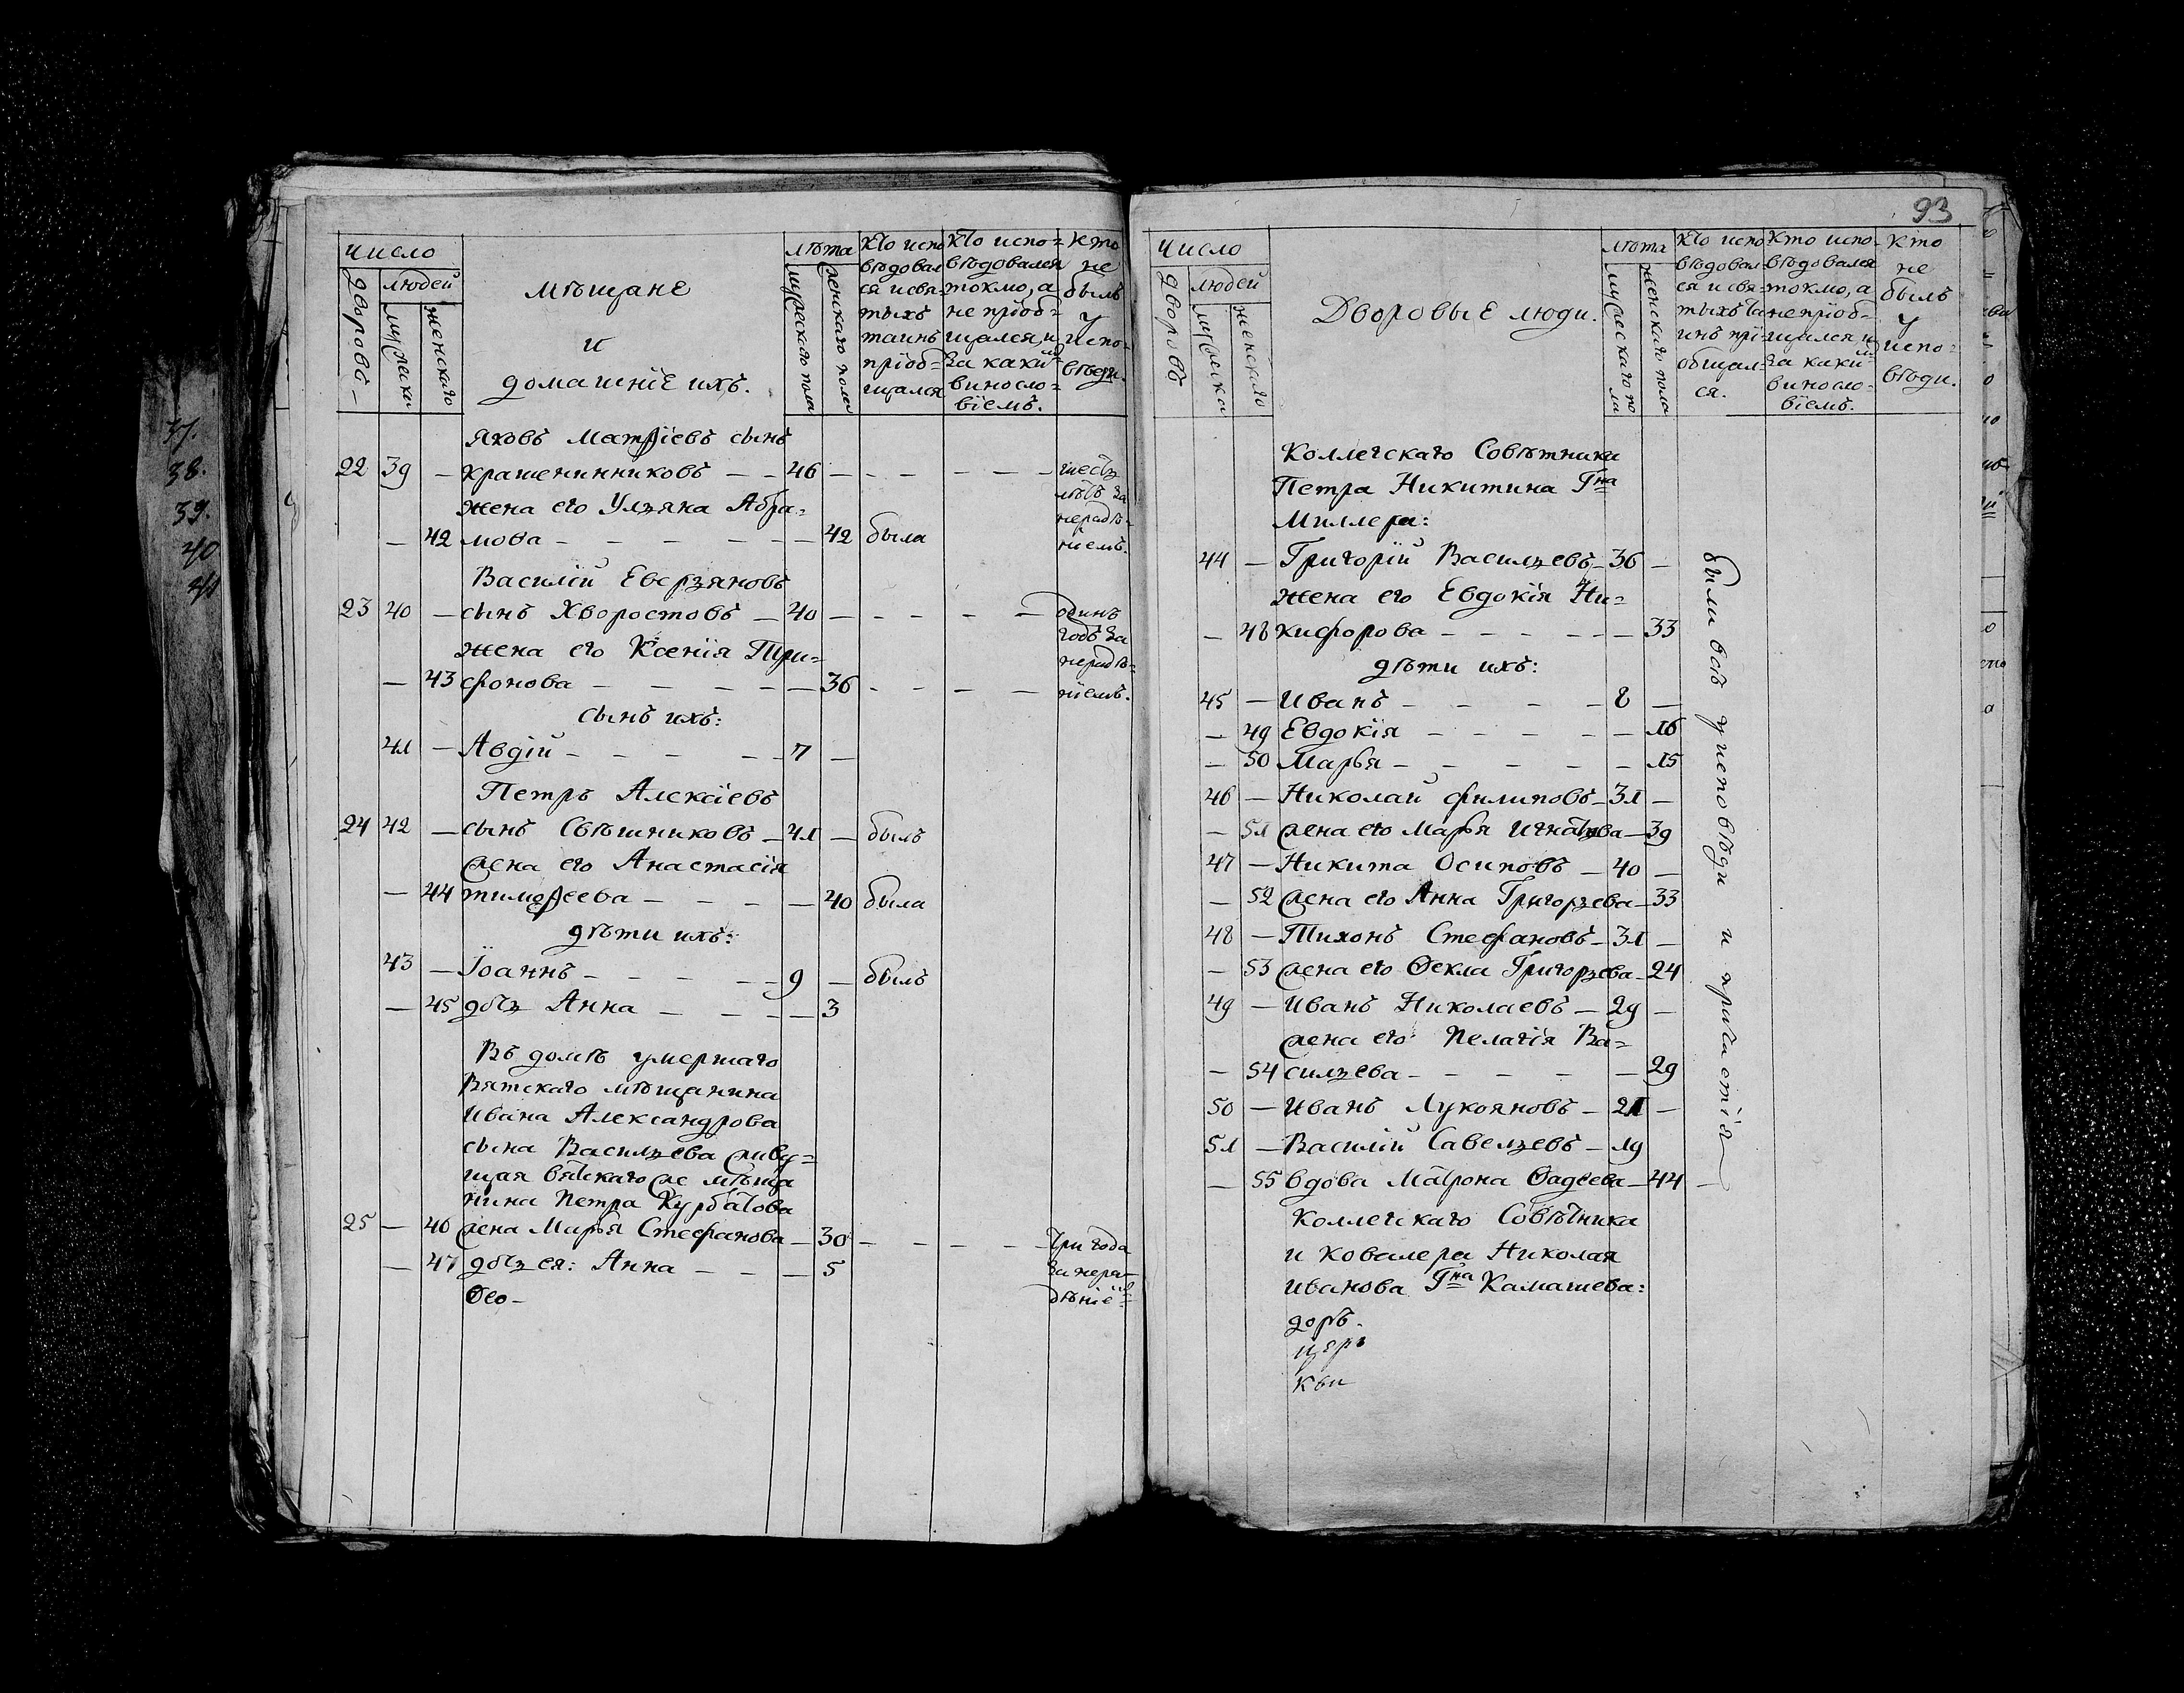 37.
38.
39.
40
41
число
дворовъ
людей
мужеска
женскаго
мѣщане
и
домашніе ихъ.
лѣта
мужескаго пола
женскаго пола
кто испо
вѣдовал
ся и свя-
тыхъ
таинъ
пріоб=
щался
кто испо=
вѣдовался
токмо, а
не пріоб=
щался, и
за какимъ
виносло=
віемъ.
кто
не
былъ
у
испо=
вѣди.
Яковъ Матѳіевъ сынъ
22 39 — крашенинниковъ — — 46 — — — — — — шесть
лѣтъ за
жена его Ульяна Абра=
нерадѣ=
— 42 мова — — — — — — 42 была
ніемъ.
Василій Емельяновъ
23 40 — сынъ Хворостовъ — 40 — — — — — одинъ
годъ за
жена его Ксенія Три=
нерадѣ=
— 43 фонова — — — — — 36 — — — — ніемъ.
сынъ ихъ:
41 — Авдій — — — — — 7 —
Петръ Алексіевъ
24 42 — сынъ Свѣшниковъ — 41 — былъ
жена его Анастасія
— 44 тимоѳеева — — — — 40 была
дѣти ихъ:
43 — Іоаннъ — — — — — 9 — былъ
— 45 дочь Анна — — — — 3
Въ домѣ умершаго
Вятскаго мѣщанина
Ивана Александрова
сына Васильева живу=
щая вятскаго же мѣща
нина Петра Курбатова
25 — 46 жена Марья Стефанова — 30 — — — — три года
— 47 дочь ея: Анна — — — 5
за нера-
дѣніемъ
Ѳео-
93
число
дворовъ
людей
мужеска
женскаго
Дворовые люди.
лѣта
мужескаго по
ла
женскаго пола
кто испо
вѣдовал
ся и свя-
тыхъ та
инъ прі-
общал-
ся.
кто испо-
вѣдовался
токмо, а
не пріоб=
щался, и
за какимъ
виносло=
віемъ.
кто
не
былъ
у
испо=
вѣди.
Коллегскаго Совѣтника
Петра Никитина Гна
Миллера:
44 — Григорій Васильевъ — 36 —
жена его Евдокія Ни=
— 48 кифорова — — — — — — 33
дѣти ихъ:
45 — Иванъ — — — — 8 —
— 49 Евдокія — — — — — — 16
— 50 Марья — — — — — — 15
46 — Николай филиповъ — 31 —
— 51 жена его Марья Игнатьева — 39
47 — Никита Осиповъ — 40 —
— 52 жена его Анна Григорьева — 33
48 — Тихонъ Стефановъ — 31 —
— 53 жена его Ѳекла Григорьева — 24
49 — Иванъ Николаевъ — 29 —
жена его Пелагія Ва=
— 54 сильева — — — — — 29
50 — Иванъ Лукояновъ — 21 —
51 — Василій Савельевъ — 19
— 55 вдова Матрона Ѳадеева — 44 —
были всѣ у исповѣди и причастія
Коллегскаго Совѣтника
и Ковалера Николая
Иванова Гна Камашева:
доръ.
церь
кви